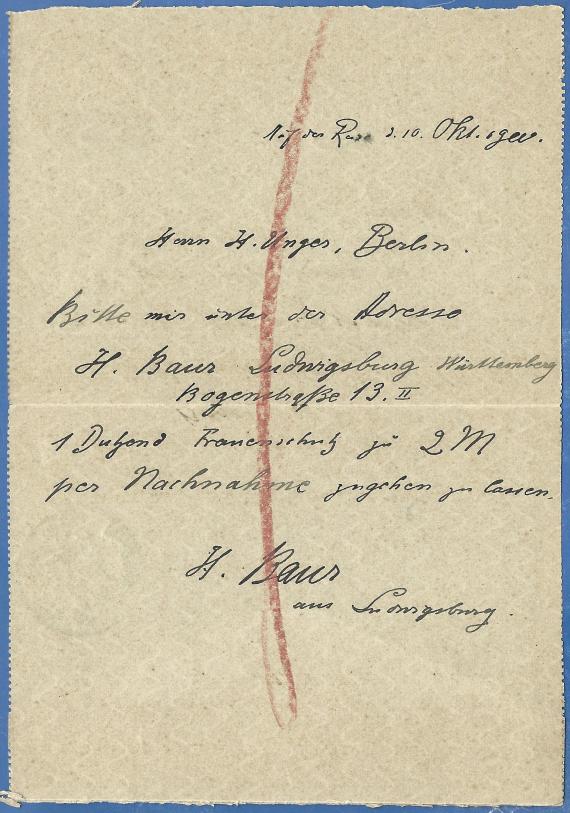 Auf der Reise d. 10. Okt. 1900.
Herrn H. Unger, Berlin.
Bitte mir unter der Adresse
H. Baur Ludwigsburg Württemberg
Bogenstraße 13. II
1 Dutzend Frauenschutz zu 2 M
per Nachnahme zugehen zu lassen.
H. Baur
aus Ludwigsburg.